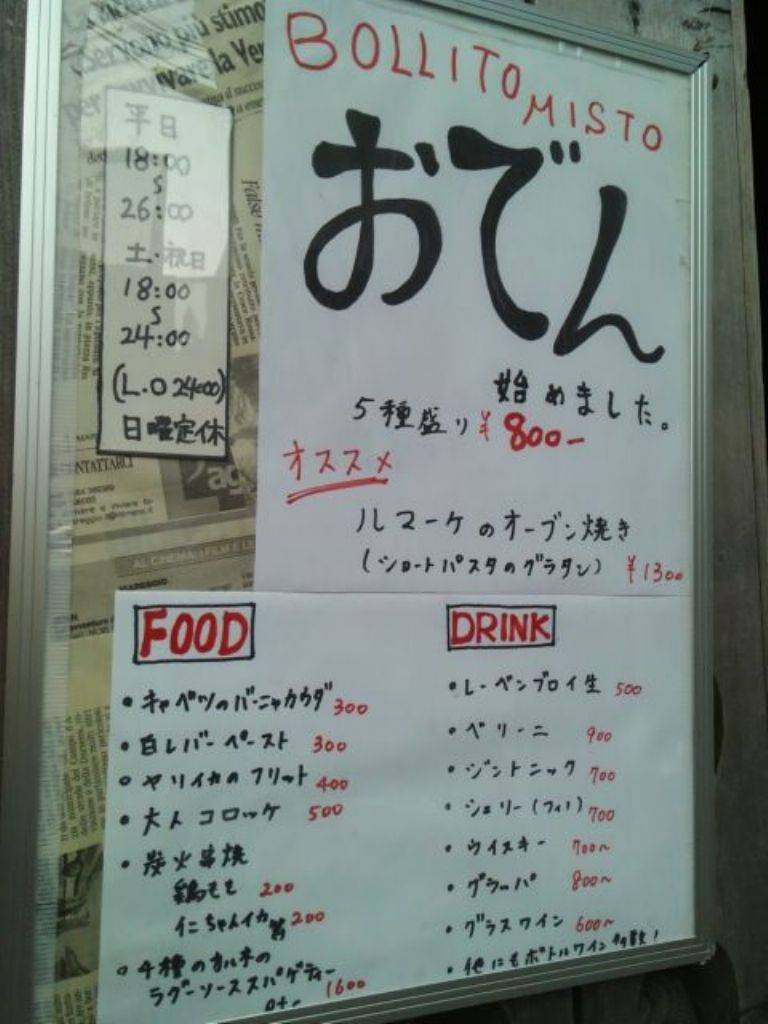 BOLLITO MISTO
おでん
始めました。
5種盛り ¥800-
オススメ
ルマーケのオーブン焼き
(ショートパスタのグラタン) ¥1300
平日
18:00
S
26:00
土・祝日
18:00
S
24:00
(L.O 24:00)
日曜定休
FOOD
・キャベツのバーニャカウダ 300
・白レバーペースト 300
・ヤリイカのフリット 400
・大人コロッケ 500
・炭火串焼
鶏もも 200
仁ちゃんイカ 200
・4種の
ラグーソーススパゲティー
1600
DRINK
・レーベンブロイ生 500
・ベリーニ 900
・ジントニック 700
・シェリー(フィノ) 700
・ウイスキー 700~
・グラッパ 800~
・グラスワイン 600~
・他にもボトルワイン多数!